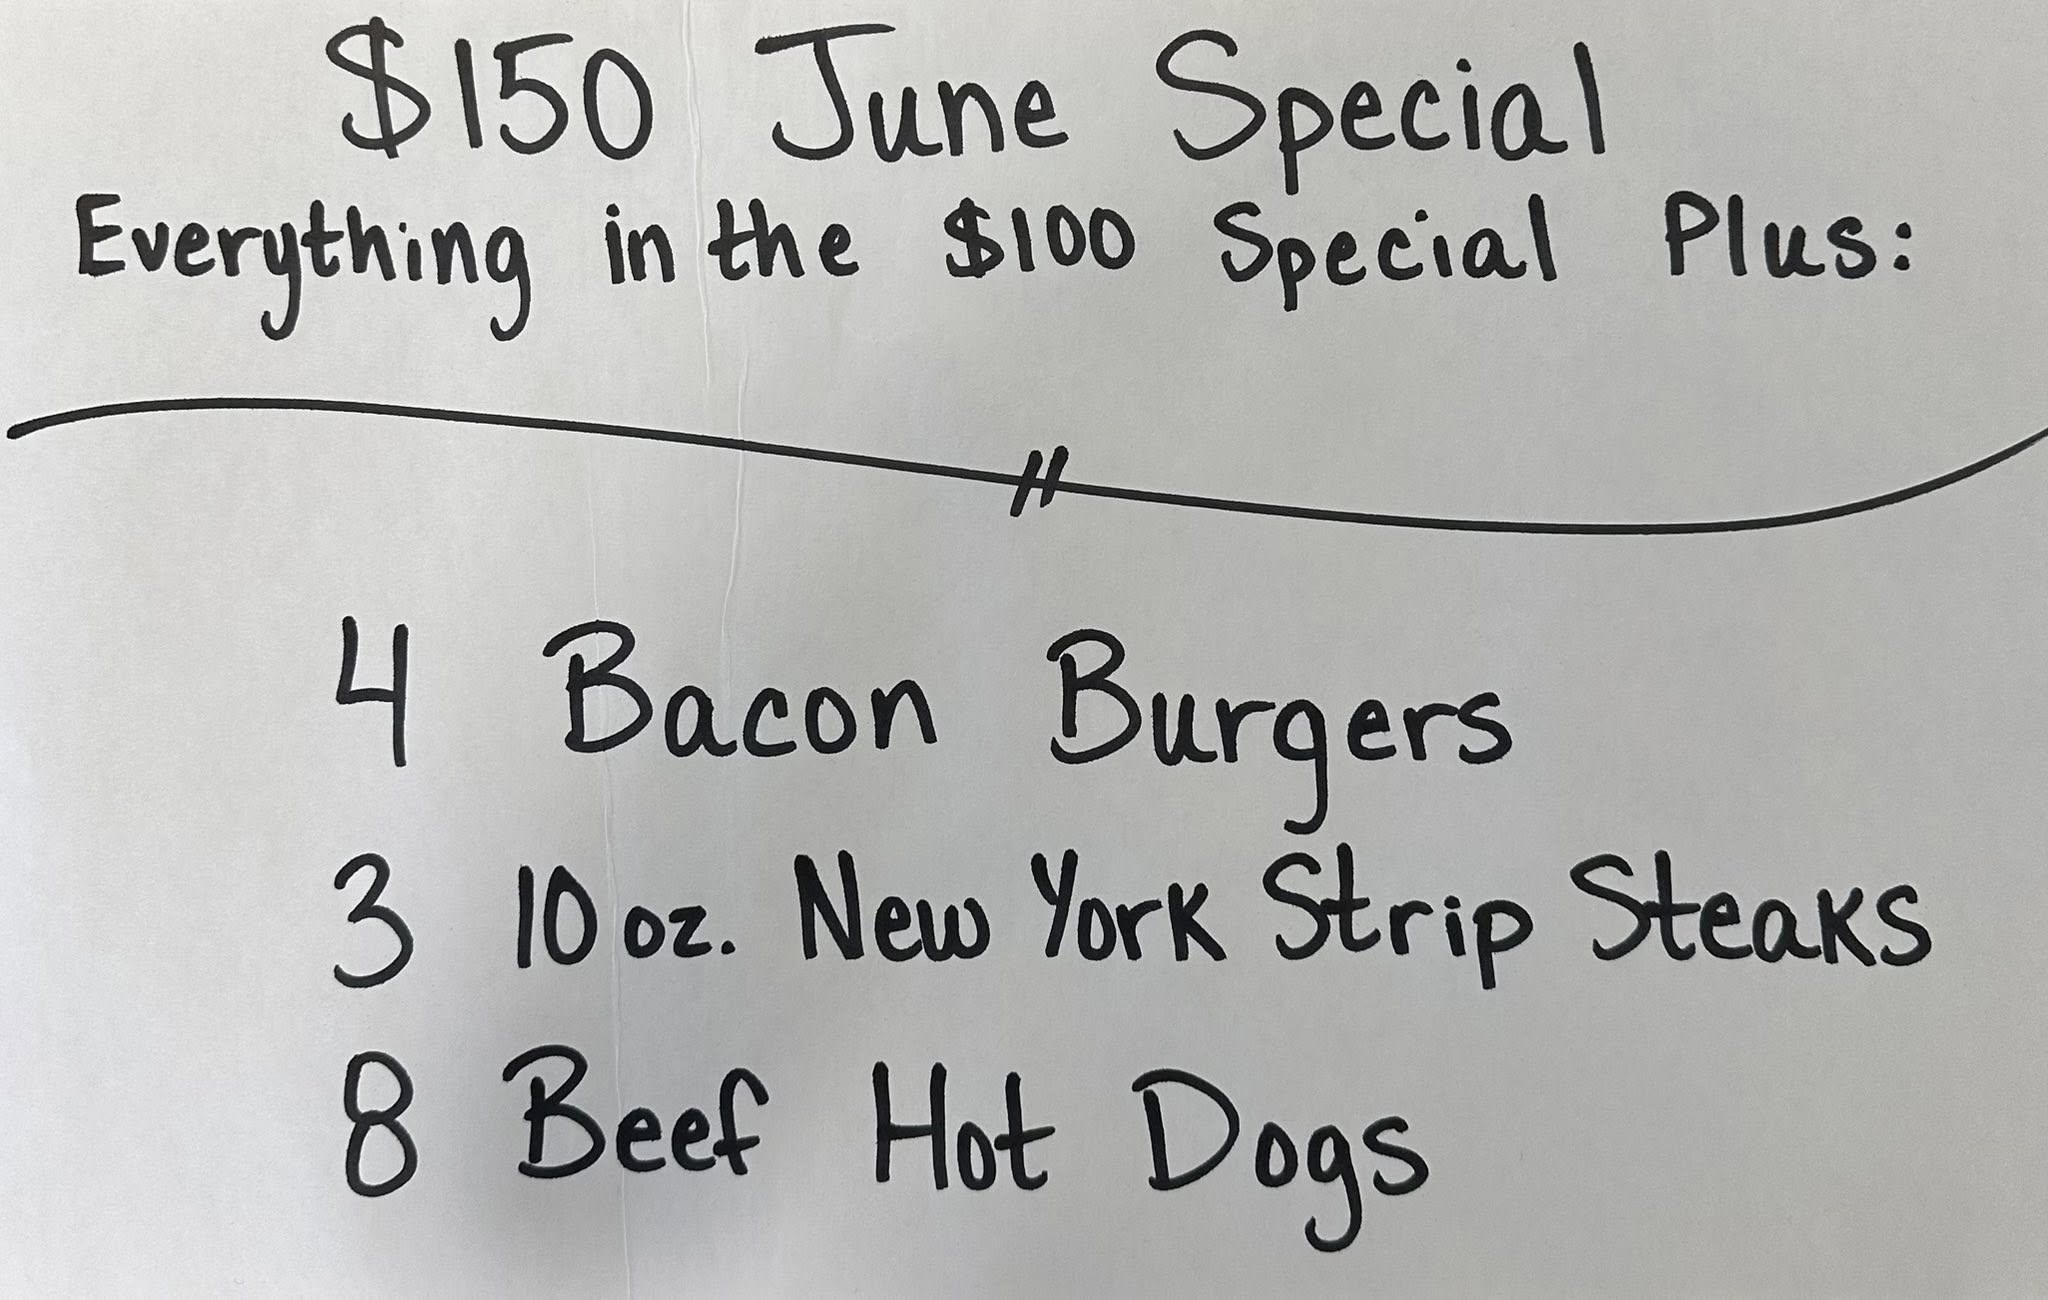 $150 June Special
Everything in the $100 Special Plus:
4 Bacon Burgers
3 10 oz. New York Strip Steaks
8 Beef Hot Dogs